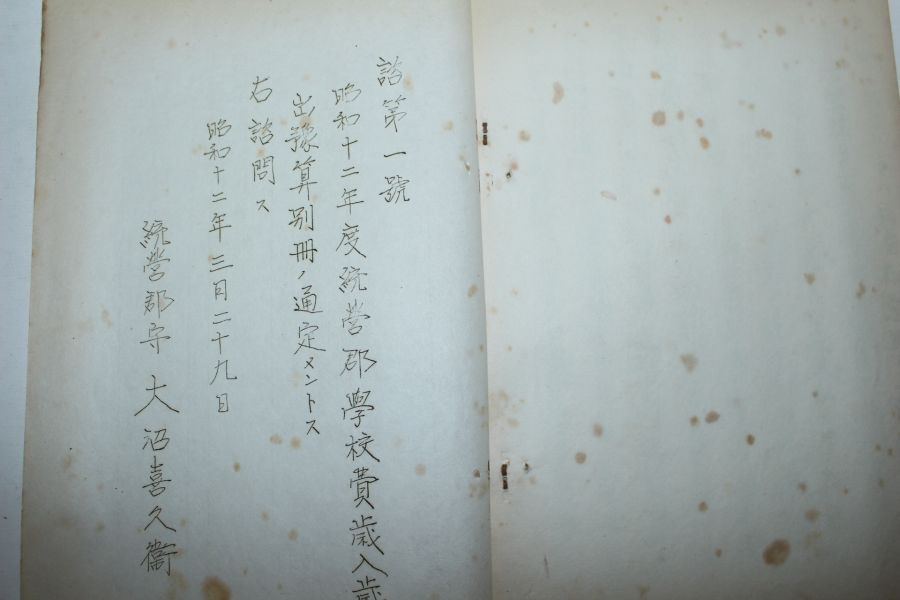 諮第一號
昭和十二年度統營郡學校費歳入歳
出豫算別冊ノ通定メントス
右諮問ス
昭和十二年三月二十九日
統營郡守 大沼喜久衞